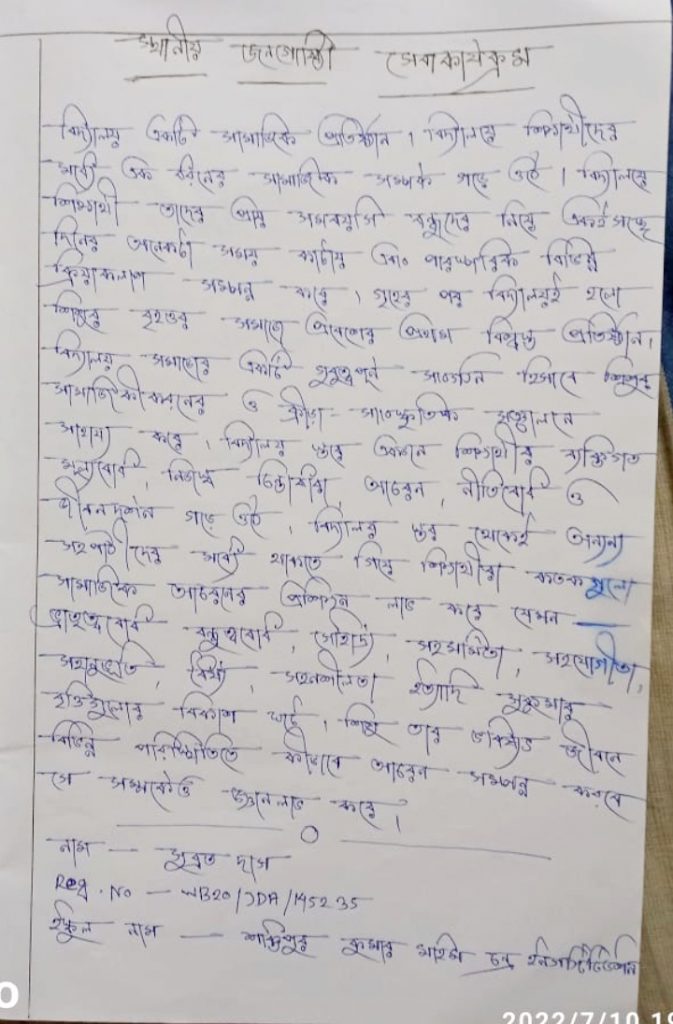 স্থানীয় জনগোষ্ঠী সেবাকার্যক্রম
বিদ্যালয় একটি সামাজিক প্রতিষ্ঠান। বিদ্যালয়ে শিক্ষার্থীদের
মধ্যে এক ধরনের সামাজিক সম্পর্ক গড়ে ওঠে। বিদ্যালয়ে
শিক্ষার্থী তাদের প্রায় সমবয়সি বন্ধুদের নিয়ে একই সঙ্গে
দিনের অনেকটা সময় কাটায় এবং পারস্পরিক বিভিন্ন
ক্রিয়াকলাপ সম্পন্ন করে। গৃহের পর বিদ্যালয়ই হলো
শিশুর বৃহত্তর সমাজে প্রবেশের প্রথম বিশ্বস্ত প্রতিষ্ঠান।
বিদ্যালয় সমাজের একটি গুরুত্বপূর্ণ সংগঠন হিসাবে শিশুর
সামাজিকীকরনের ও ক্রীড়া-সাংস্কৃতিক সঞ্চালনে
সাহায্য করে। বিদ্যালয় স্তরে একজন শিক্ষার্থীর ব্যক্তিগত
মূল্যবোধ, নিজস্ব চিন্তাধারা, আচরন, নীতিবোধ ও
জীবনদর্শন গড়ে ওঠে। বিদ্যালয় স্তর থেকেই অন্যান্য
সহপাঠীদের মধ্যে থাকতে গিয়ে শিক্ষার্থীরা কতকগুলো
সামাজিক আচরনের প্রশিক্ষন লাভ করে যেমন —
ভ্রাতৃত্ববোধ বন্ধুত্ববোধ, সৌহার্দ্য, সহমর্মিতা, সহযোগীতা,
সহানুভূতি, ধৈর্য্য, সহনশীলতা ইত্যাদি সুকুমার
বৃত্তিগুলোর বিকাশ ঘটে। শিশু তার ভবিষ্যত জীবনে
বিভিন্ন পরিস্থিতিতে কীভাবে আচরন সম্পন্ন করবে
সে সম্পর্কেও জ্ঞানলাভ করে।
নাম — সুব্রত দাস
Reg. No — WB20/SDA/145235
ইস্কুল নাম — শক্তিপুর কুমার মহিম চন্দ্র ইনসটিটিউশন
2022/7/10 19